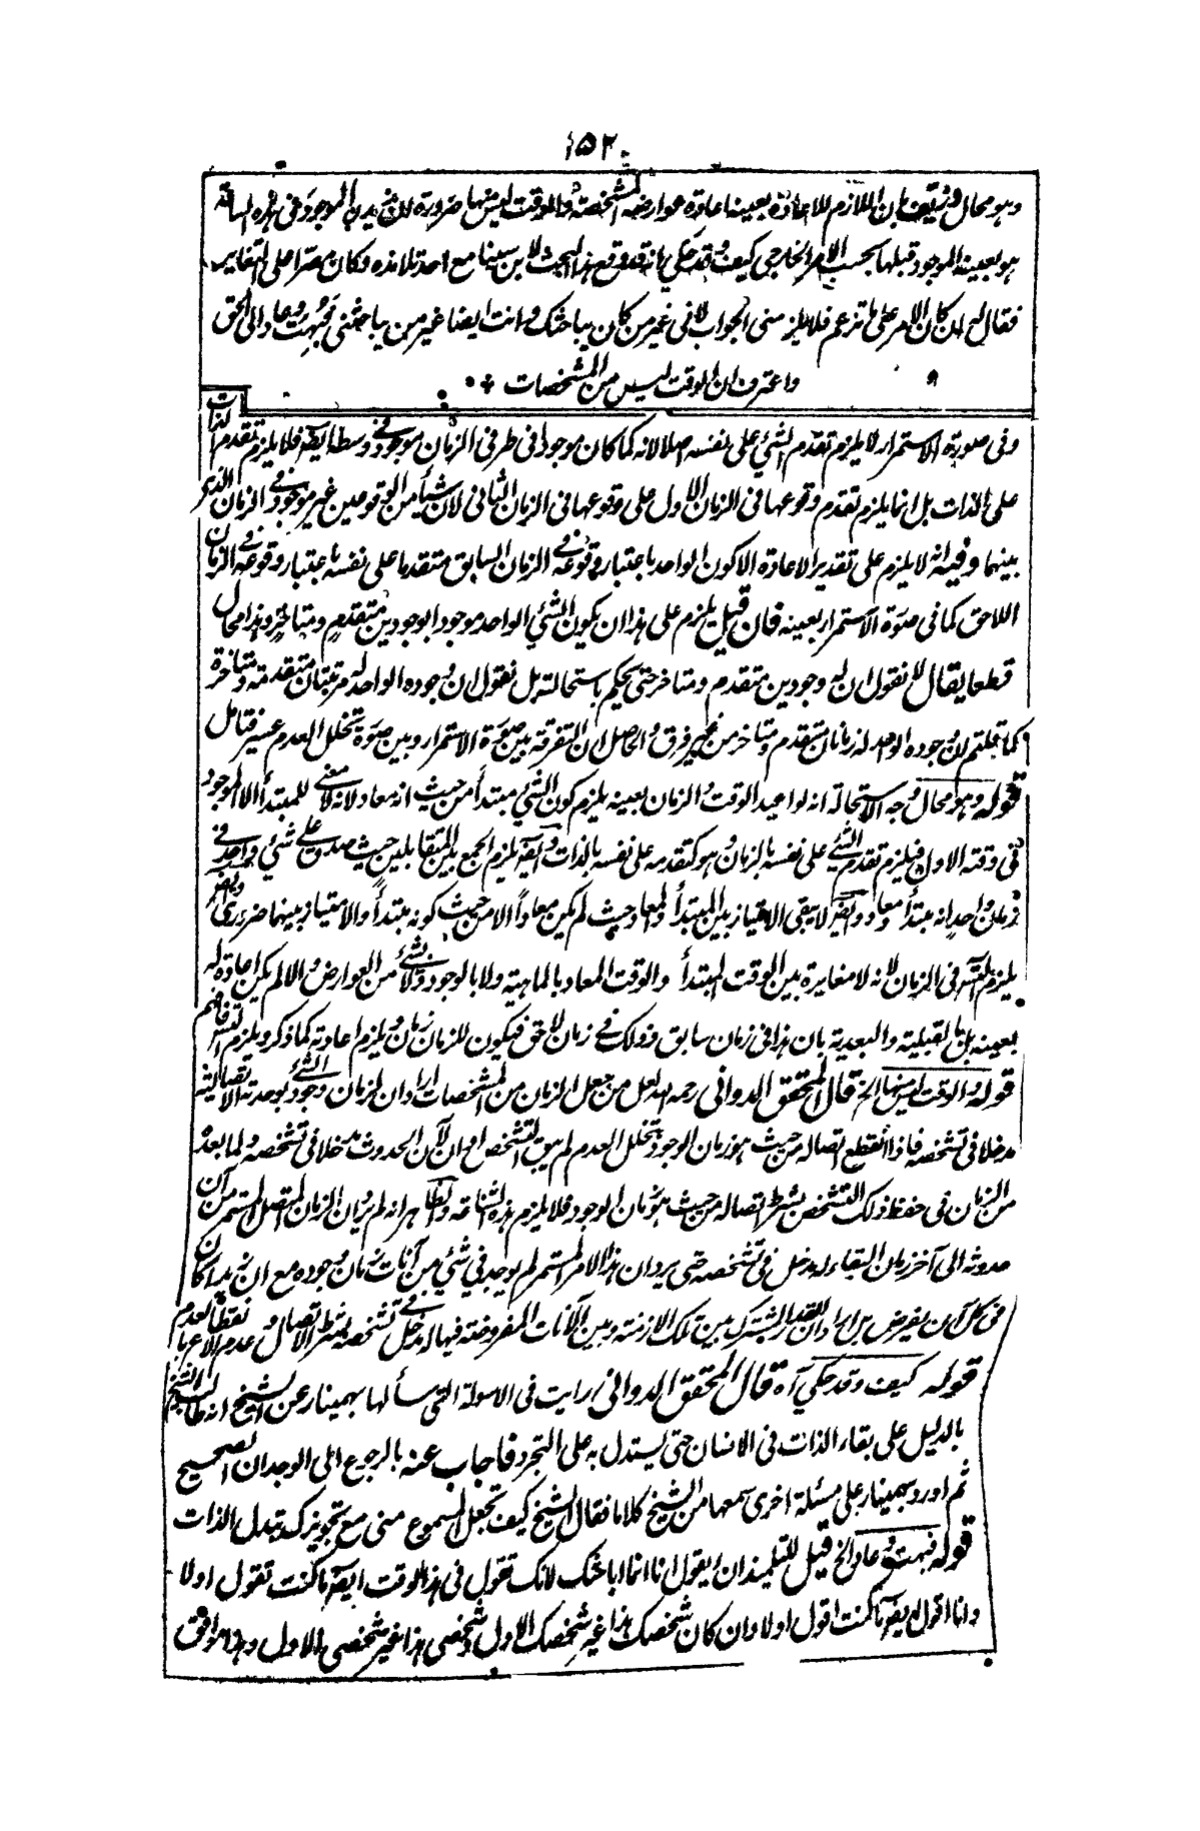 ١٥٢
وهو محال وتحقيقه ان اللازم للاعادة بعينه اعادة عوارضه المشخصة والوقت ليس منها ضرورة ان زيدا الموجود فى هذه الساعة
هو بعينه الموجود قبلها بحسب الامر الخارجى كيف وقد حكي انه قد وقع هذا البحث لابن سينا مع احد تلامذه وكان مصرا على التغاير
فقال له ان كان الامر على ما تزعم فلا يلزمنى الجواب لانى غير من كان يباحثك وانت ايضا غير من يباحثنى فبهت وعاد الى الحق
واعترف ان الوقت ليس من المشخصات
وفى صورة الاستمرار لا يلزم تقدم الشئ على نفسه اصلا لانه كما كان موجودا فى طرفى الزمان موجود فى وسطه ايضا فلا يلزم تقدم الذات
على الذات بل انما يلزم تقدم وقوعها فى الزمان الاول على وقوعها فى الزمان الثانى لان شيأ من الوقوعين غير موجود فى الزمان الذى
بينهما وفيه انه لا يلزم على تقدير الاعادة الا كون الواحد باعتبار وقوعه فى الزمان السابق متقدما على نفسه باعتبار وقوعه فى الزمان
اللاحق كما فى صورة الاستمرار بعينه فان قيل يلزم على هذا ان يكون الشئ الواحد موجودا بوجودين متقدم ومتاخر وهذا محال
قطعا يقال لا نقول ان له وجودين متقدم ومتاخر حتى يحكم باستحالته بل نقول ان وجوده الواحد له مرتبتان متقدمة ومتاخرة
كما قلتم ان وجوده الواحد له زمانان متقدم ومتاخر من غير فرق والحاصل ان التفرقة بين صورة الاستمرار وبين صورة تخلل العدم عسير فتامل
قوله وهو محال وجه الاستحالة انه لو اعيد الوقت والزمان بعينه يلزم كون الشئ مبتدأ من حيث انه معاد لانه لا معنى للمبتدأ الا الموجود
فى وقته الاول فيلزم تقدم الشئ على نفسه بالزمان وهو كتقدمه على نفسه بالذات وايضا يلزم الجمع بين المتقابلين حيث صدق على شئ واحد فى
زمان واحد انه مبتدأ ومعاد وايضا لا يبقى الامتياز بين المبتدأ والمعاد حيث لم يكن معادا الا من حيث كونه مبتدأ والامتياز بينهما ضرورى وايضا
يلزم التس فى الزمان لانه لا مغايرة بين الوقت المبتدأ والوقت المعاد بالماهية ولا بالوجود ولا بشئ من العوارض والا لم يكن اعادة له
بعينه بل بالقبلية والبعدية بان هذا فى زمان سابق وذلك فى زمان لاحق فيكون للزمان زمان ويلزم اعادته كما ذكر ويلزم التس فافهم
قوله والوقت ليس منها الخ قال المحقق الدوانى رحمه الله لعل من جعل الزمان من المشخصات اراد ان لزمان وجود الشئ بوحدته الاتصالية
مدخلا فى تشخصه فاذا انقطع اتصاله من حيث هو زمان الوجود بتخلل العدم لم يبق التشخص او ان لآن الحدوث مدخلا فى تشخصه ولما بعده
من الزمان فى حفظ ذلك التشخص بشرط اتصاله من حيث هو زمان الوجود فلا يلزم هذه الشناعة والظاهر انه لم يرد ان الزمان المتصل المستمر من آن
حدوثه الى آخر زمان البقاء له مدخل فى تشخصه حتى يرد ان هذا الامر المستمر لم يوجد فى شئ من آنات زمان وجوده مع ان زيدا كان
فى كل آن يفرض بل اراد ان القدر المشترك بين تلك الازمنة وبين الآنات المفروضة فيها له مدخل فى تشخصه بشرط الاتصال وعدم
قوله كيف وقد حكي آه قال المحقق الدوانى رايت فى الاسولة التى سألها بهمنيار عن الشيخ انه طالب الشيخ
بالدليل على بقاء الذات فى الانسان حتى يستدل به على التجرد فاجاب عنه بالرجوع الى الوجدان الصحيح
ثم اورد بهمنيار على مسئلة اخرى سمعها من الشيخ كلاما فقال الشيخ كيف تجعل المسموع منى مع تجويزك تبدل الذات
قوله فبهت وعاد الخ قيل للتلميذ ان يقول انا انما اباحثك لانك تقول فى هذا الوقت ايضا ما كنت تقول اولا
وانا اقول ايضا ما كنت اقول اولا وان كان شخصك هذا غير شخصك الاول وشخصى هذا غير شخصى الاول وهذا موافق